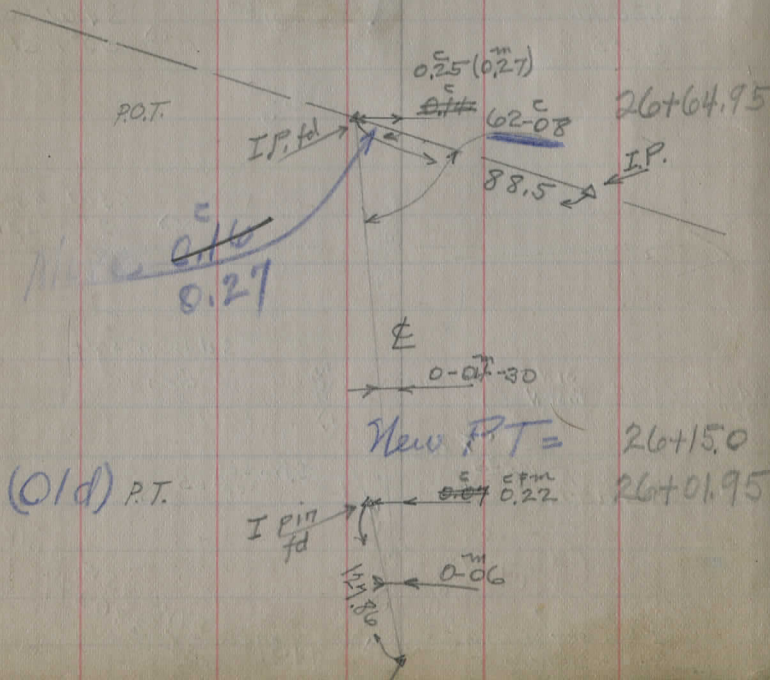 c m
0.25 (0.27)
c c
0.14 62-08 26+64.95
P.O.T.
I.P. fd
I.P.
88.5
c
0.16
0.27
℄
m
0-02-30
New PT = 26+15.0
c c+m
(Old) P.T. 0.07 0.22 26+01.95
I pin
fd
m
0-06
127.86